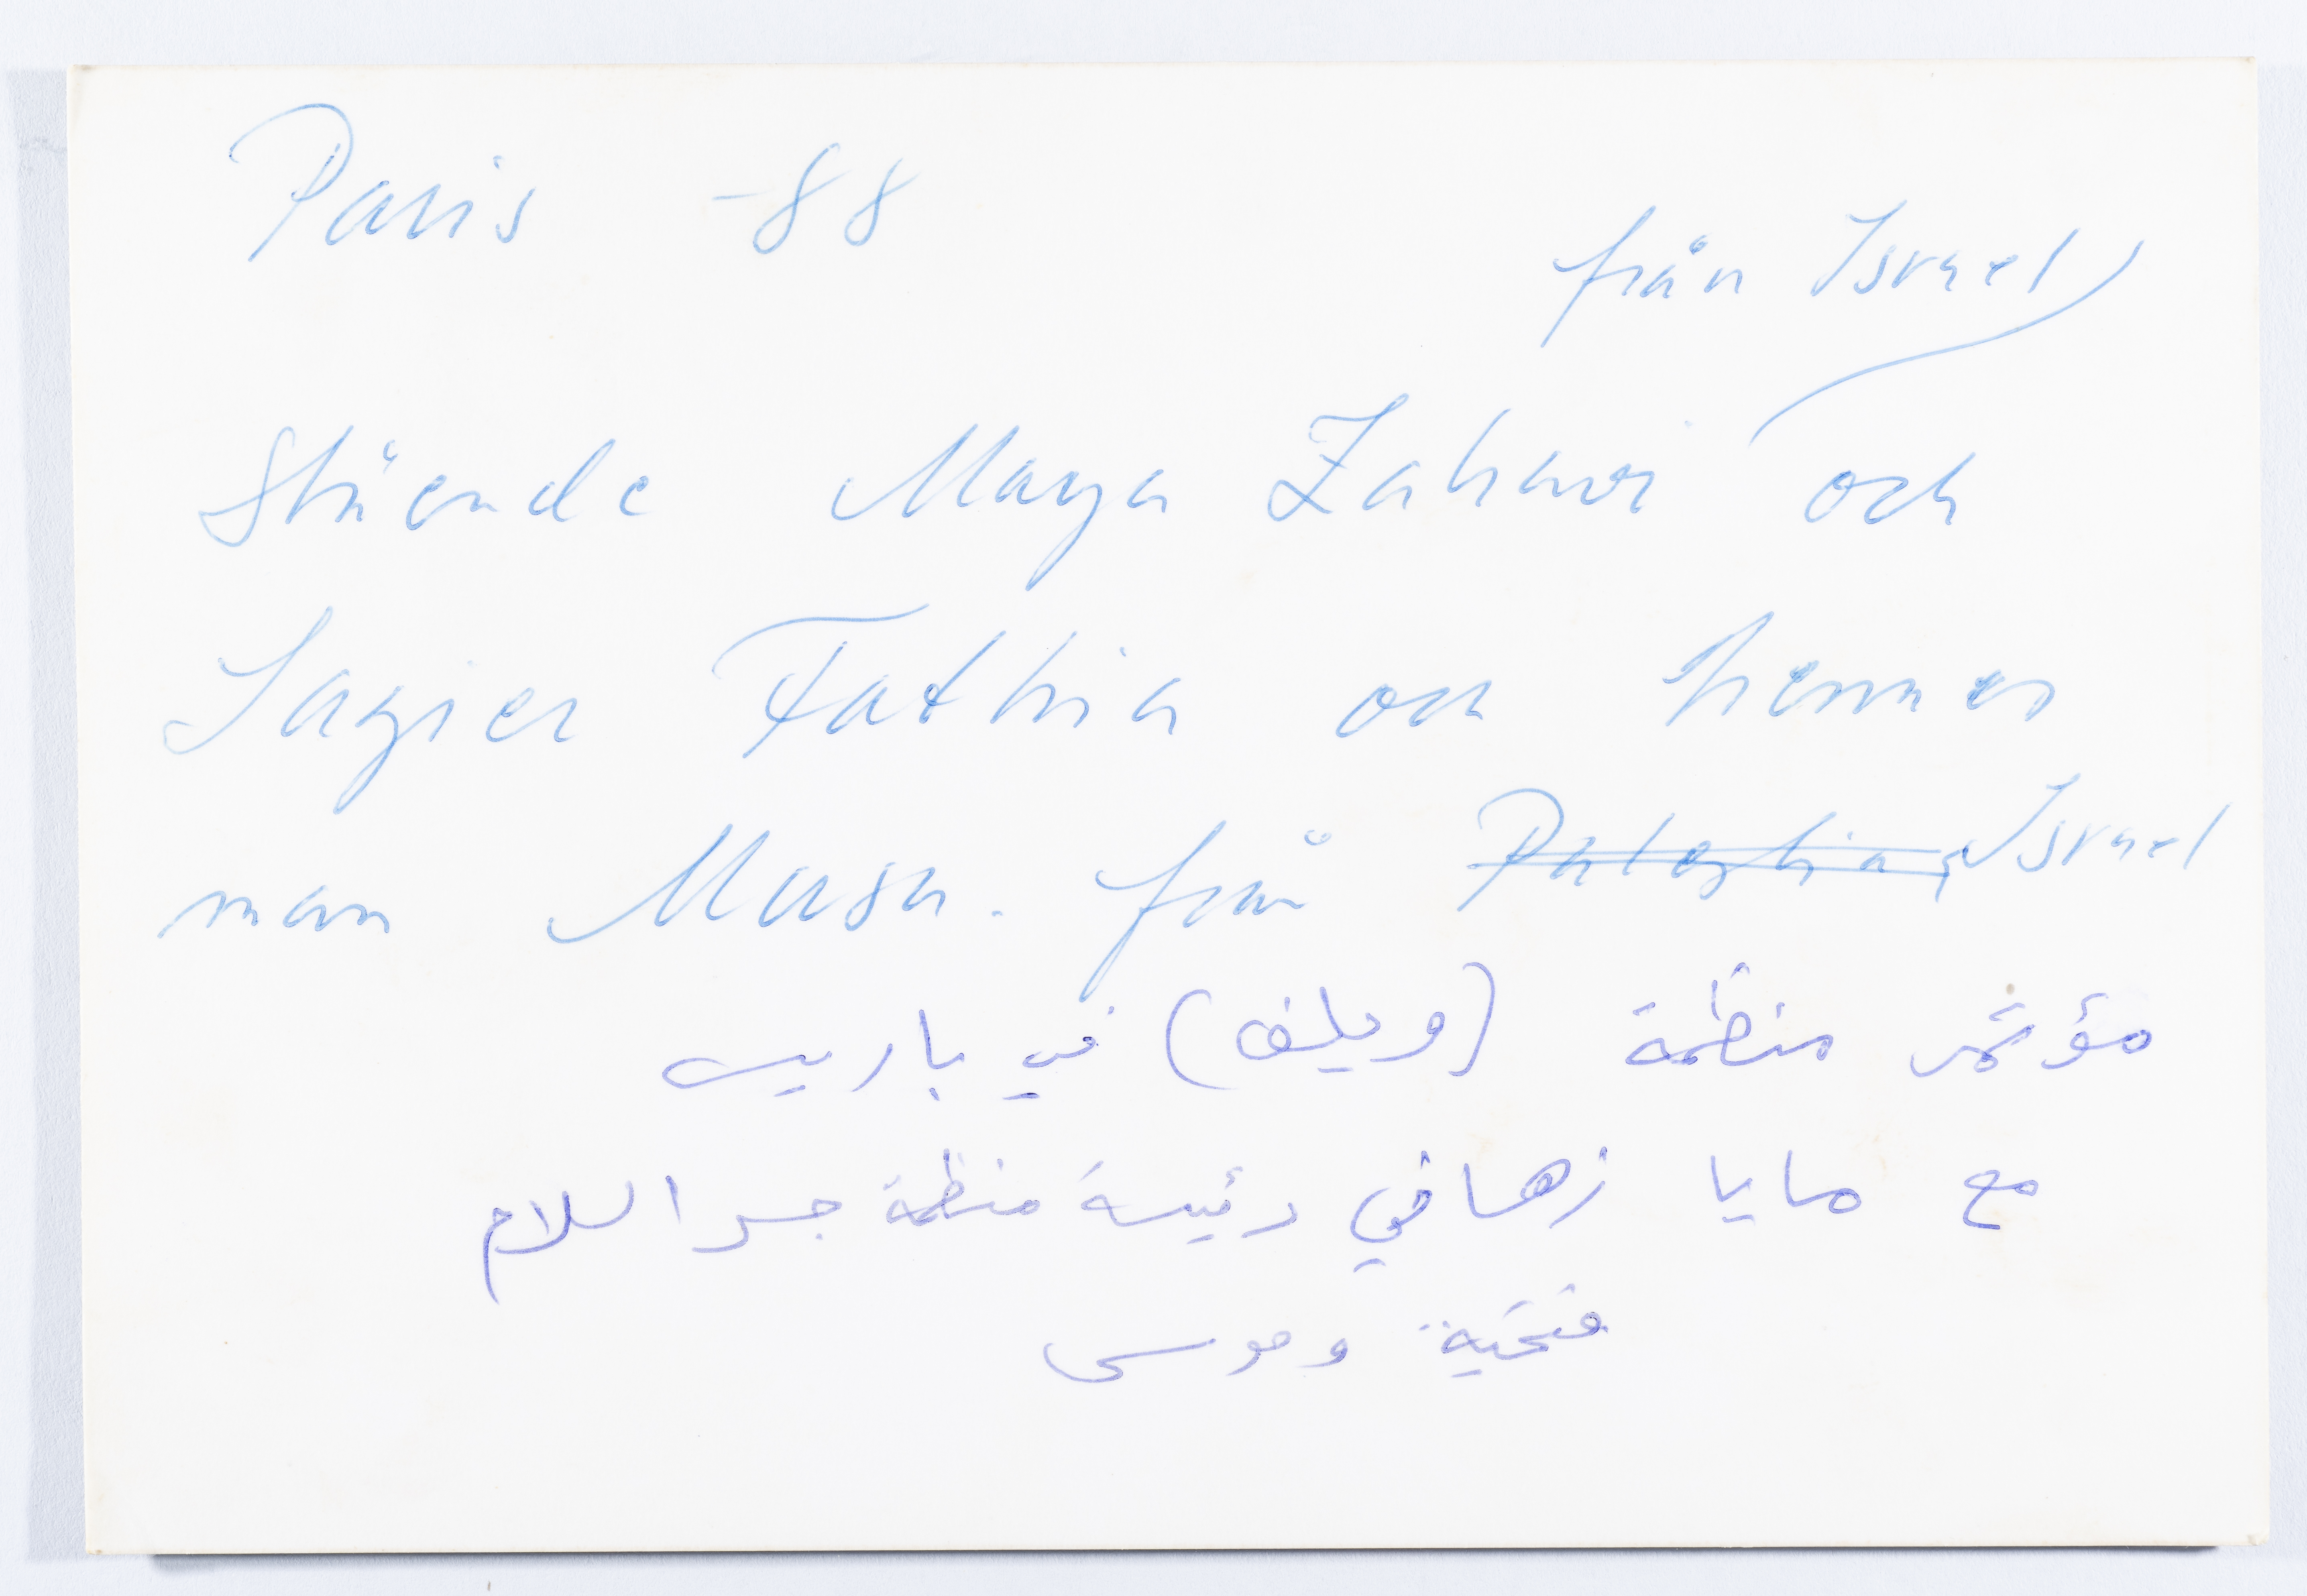 Paris -88
från Israel
Stående Maya Zahavi och
Fathia och hennes
man Musa. från Palestina, Israel
مؤتمر منظمة (ويلف) في باريس
مع مايا زهافي رئيسة منظمة جسر السلام
فتحية وموسى